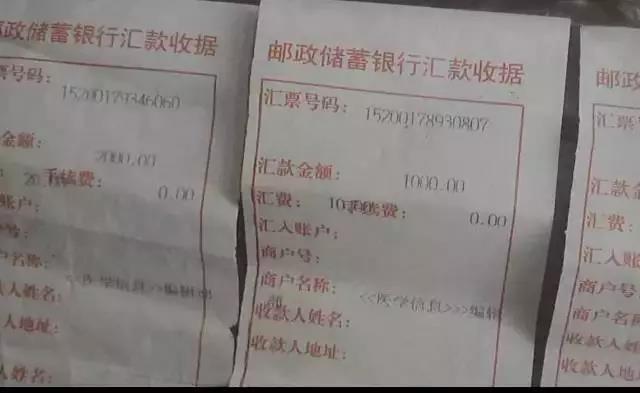 邮政储蓄银行汇款收据
票号码：
15200179346060
金额：
2000.00
手续费：
0.00
账户：
号：
户名称：
<<医学信息>>编辑
人姓名：
人地址：
人姓名：
邮政储蓄银行汇款收据
汇票号码： 15200178930807
汇款金额： 1000.00
汇费： 10 续费： 0.00
汇入账户：
商户号：
商户名称： <<医学信息>>>编辑
收款人姓名：
收款人地址：
邮政
汇票号
汇款金
汇费：
汇入账
商户号
商户名
收款人
收款人